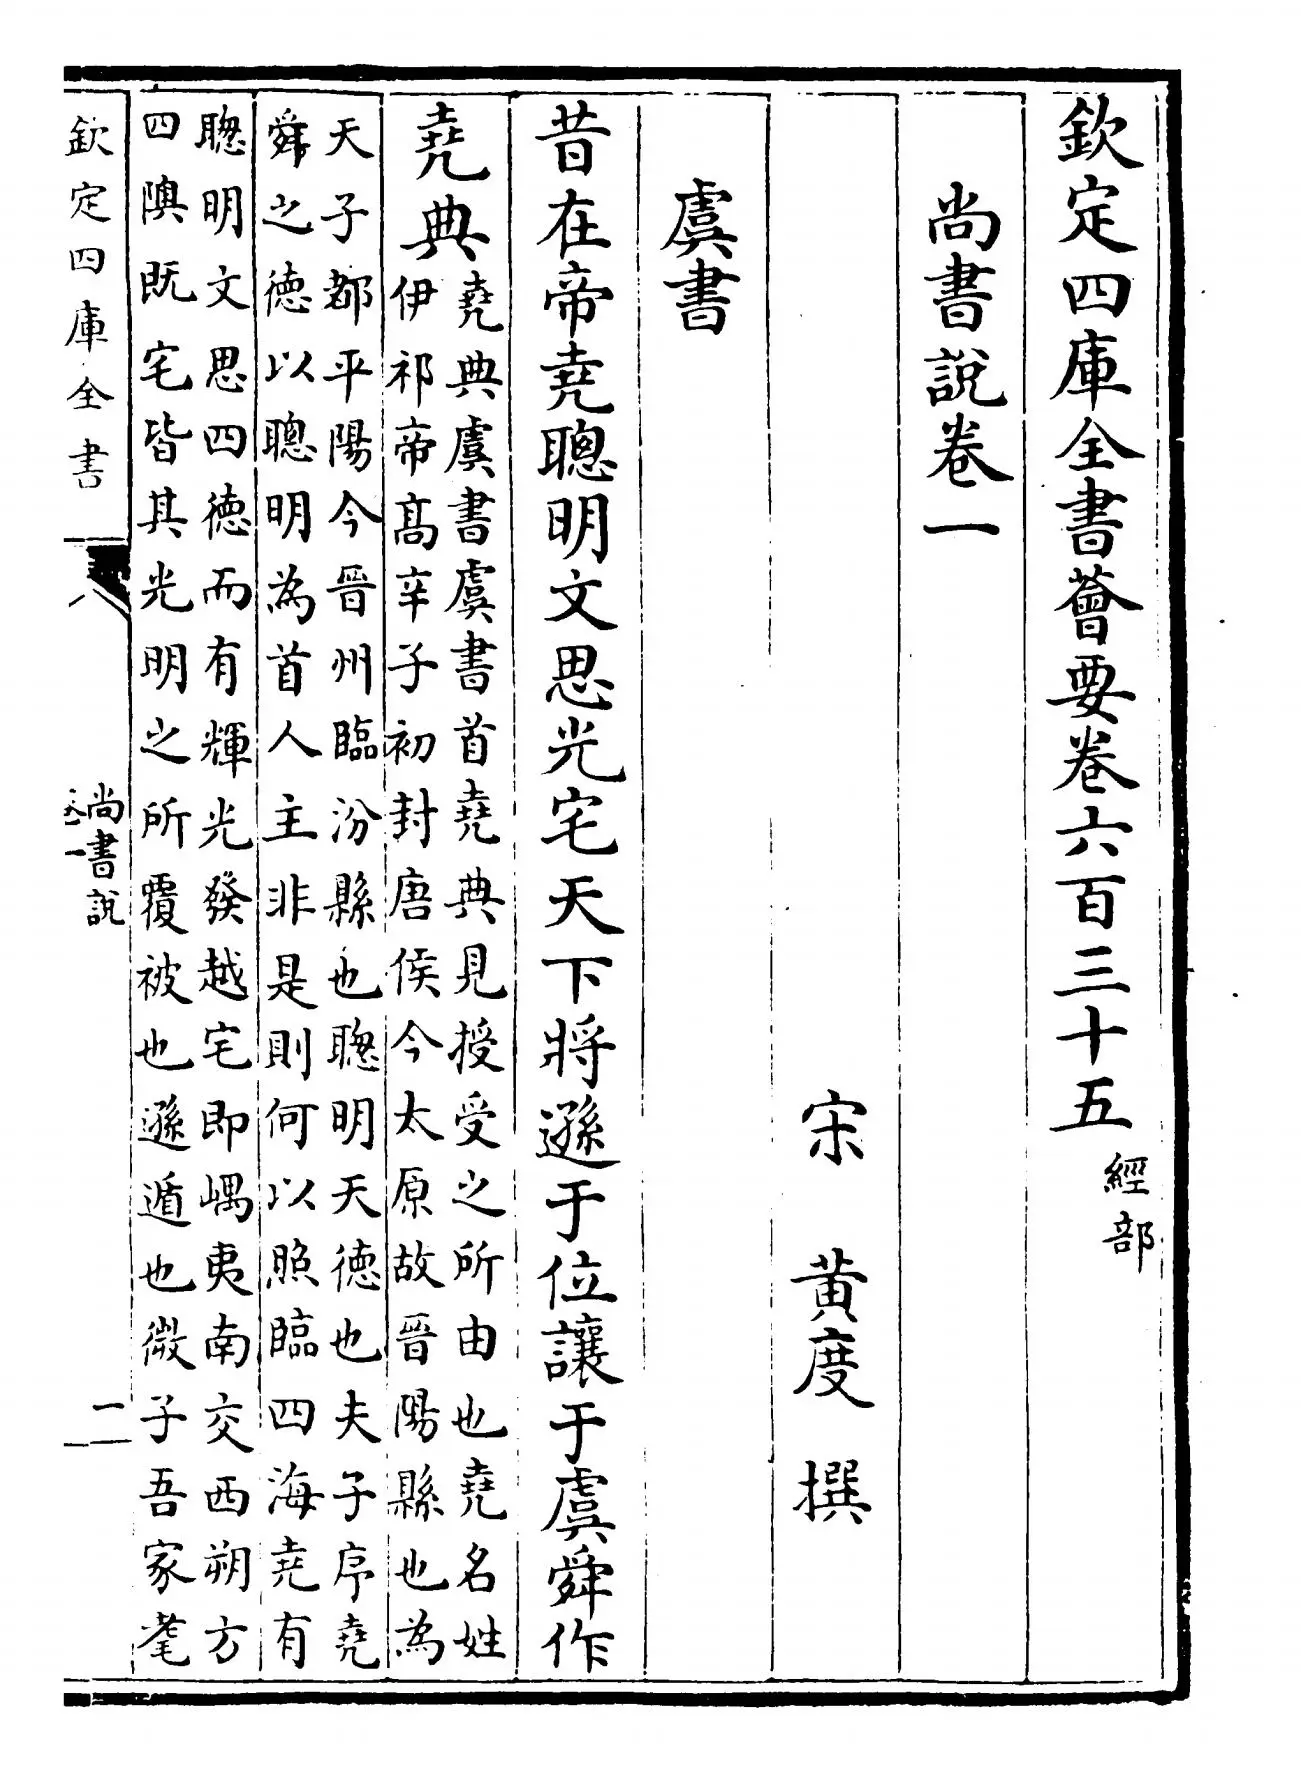 欽定四庫全書薈要卷六百三十五 經部
尚書說卷一
宋 黃度 撰
虞書
昔在帝堯聰明文思光宅天下將遜于位讓于虞舜作
堯典
堯典虞書虞書首堯典見授受之所由也堯名姓
伊祁帝髙辛子初封唐侯今太原故晉陽縣也為
天子都平陽今晉州臨汾縣也聰明天德也夫子序堯
舜之德以聰明為首人主非是則何以照臨四海堯有
聰明文思四德而有輝光發越宅即嵎夷南交西朔方
四隩既宅皆其光明之所覆被也遜遁也微子吾家耄
欽定四庫全書
尚書說
卷一
一